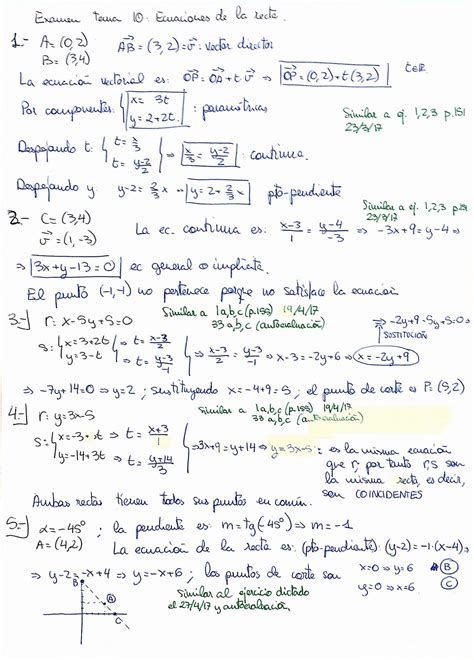 Examen Tema 10: Ecuaciones de la recta.
1.- A=(0,2) AB=(3,2)=v: vector director
B=(3,4)
La ecuación vectorial es: OP=OA+t v ⇒ OP=(0,2)+t(3,2) t∈R
Por componentes: { x= 3t y=2+2t : paramétricas
Similar a ej. 1,2,3 p.151
23/3/17
Despejando t: { t=x/3 t=y-2/2 ⇒ x/3 = y-2/2 : continua.
Despejando y: y-2=2/3 x ⇒ y=2+2/3 x pto-pendiente
Similar a ej. 1,2,3 p.151
23/3/17
2.- C=(3,4)
v=(1,-3)
La ec. continua es: x-3/1 = y-4/-3 ⇒ -3x+9=y-4 ⇒
⇒ 3x+y-13=0 ec general o implícita.
El punto (-1,-1) no pertenece porque no satisface la ecuación
Similar a 1a,b,c (p.155) 19/4/17
33 a,b,c (autoevaluación)
3.- r: x-5y+5=0
s: { x=3+2t y=3-t ⇒ t=x-3/2 t=y-3/-1 ⇒ x-3/2 = y-3/-1 ⇒ x-3=-2y+6 ⇒ x=-2y+9
⇒ -2y+9-5y+5=0
SUSTITUCIÓN
⇒ -7y+14=0 ⇒ y=2; sustituyendo x=-4+9=5; el punto de corte es P:(5,2)
Similar a 1a,b,c (p.155) 19/4/17
33 a,b,c (autoevaluación)
4.- r: y=3x-5
s={ x=-3+t y=-14+3t ⇒ t=x+3/1 t=y+14/3 ⇒ 3x+9=y+14 ⇒ y=3x-5: es la misma ecuación
que r, por tanto r,s son
la misma recta, es decir,
son COINCIDENTES
Ambas rectas tienen todos sus puntos en común.
5.- α=-45°; la pendiente es: m=tg(-45°) ⇒ m=-1
A=(4,2) La ecuación de la recta es: (pto-pendiente): (y-2)=-1·(x-4) ⇒
⇒ y-2=-x+4 ⇒ y=-x+6; los puntos de corte son x=0 ⇒ y=6 B
y=0 ⇒ x=6 C
Similar al ejercicio dictado
el 27/4/17 y autoevaluación.
B
A
C